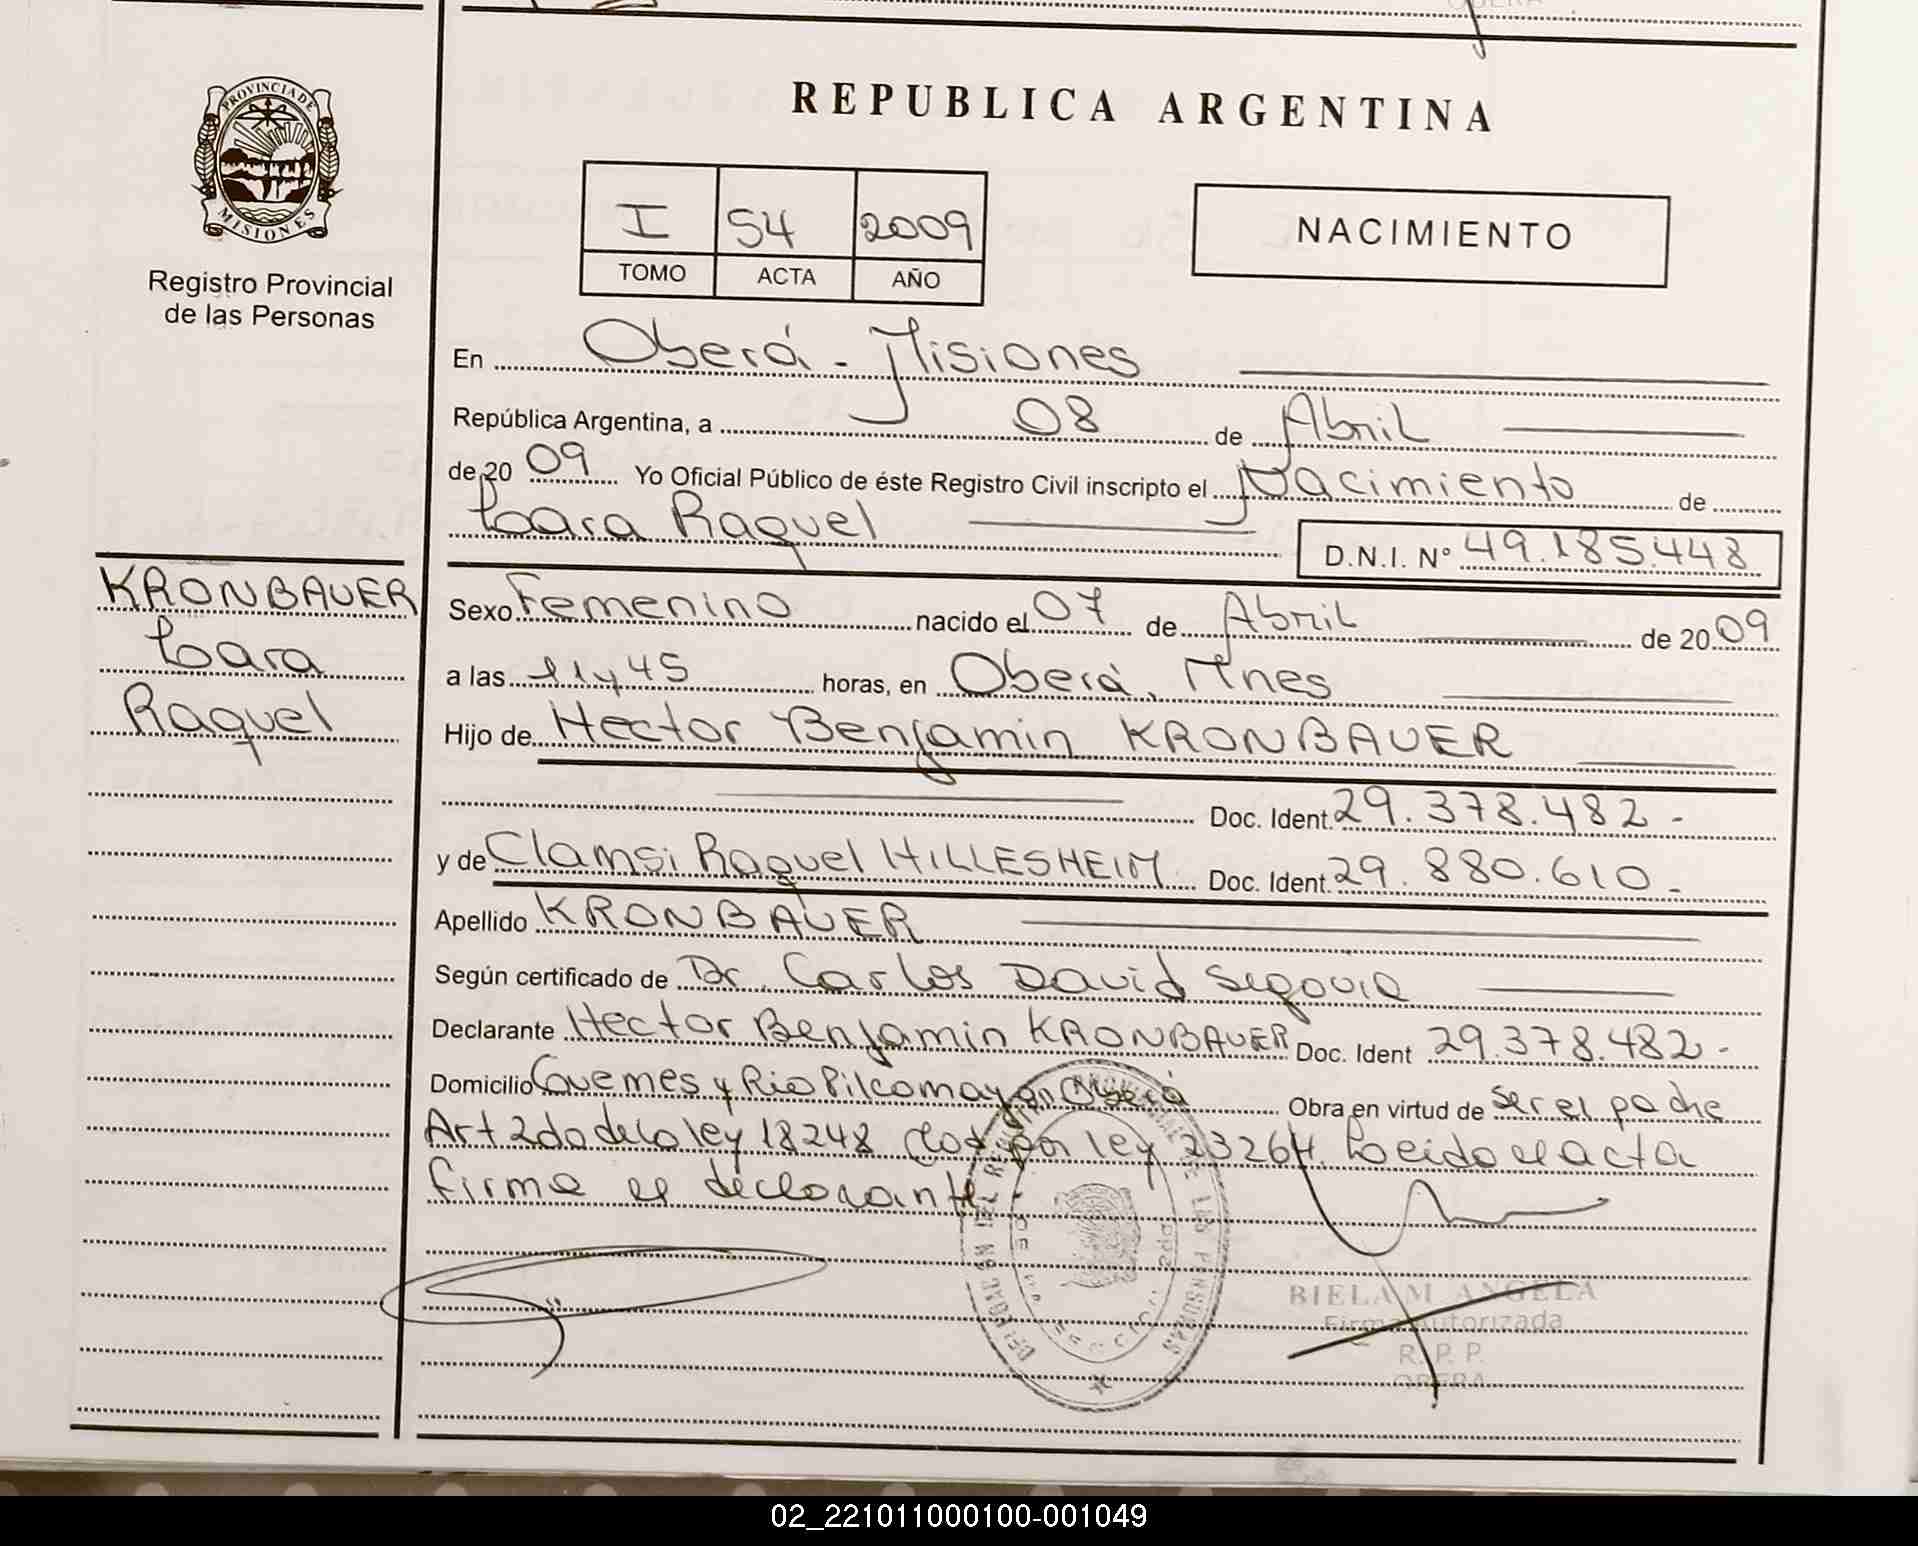 PROVINCIA DE
MISIONES
Registro Provincial
de las Personas
KRONBAUER
Lara
Raquel
REPUBLICA ARGENTINA
I 54 2009
TOMO ACTA AÑO
NACIMIENTO
En Oberá - Misiones
República Argentina, a 08 de Abril
de 20 09 Yo Oficial Público de éste Registro Civil inscripto el Nacimiento de
Lara Raquel D.N.I. N° 49.185.448
Sexo Femenino nacido el 07 de Abril de 20 09
a las 11 y 45 horas, en Oberá, Mnes
Hijo de Hector Benjamin KRONBAUER
Doc. Ident. 29.378.482-
y de Clamsi Raquel HILLESHEIM Doc. Ident. 29.880.610-
Apellido KRONBAUER
Según certificado de Dr. Carlos David Segovia
Declarante Hector Benjamin KRONBAUER Doc. Ident 29.378.482-
Domicilio Guemes y Rio Pilcomayo Oberá Obra en virtud de ser el padre
Art 2do de la ley 18248 mod. por ley 23264. Leido el acta
firma el declarante
BIELA M. ANGELA
Firma Autorizada
R. P. P.
OBERA
02_221011000100-001049